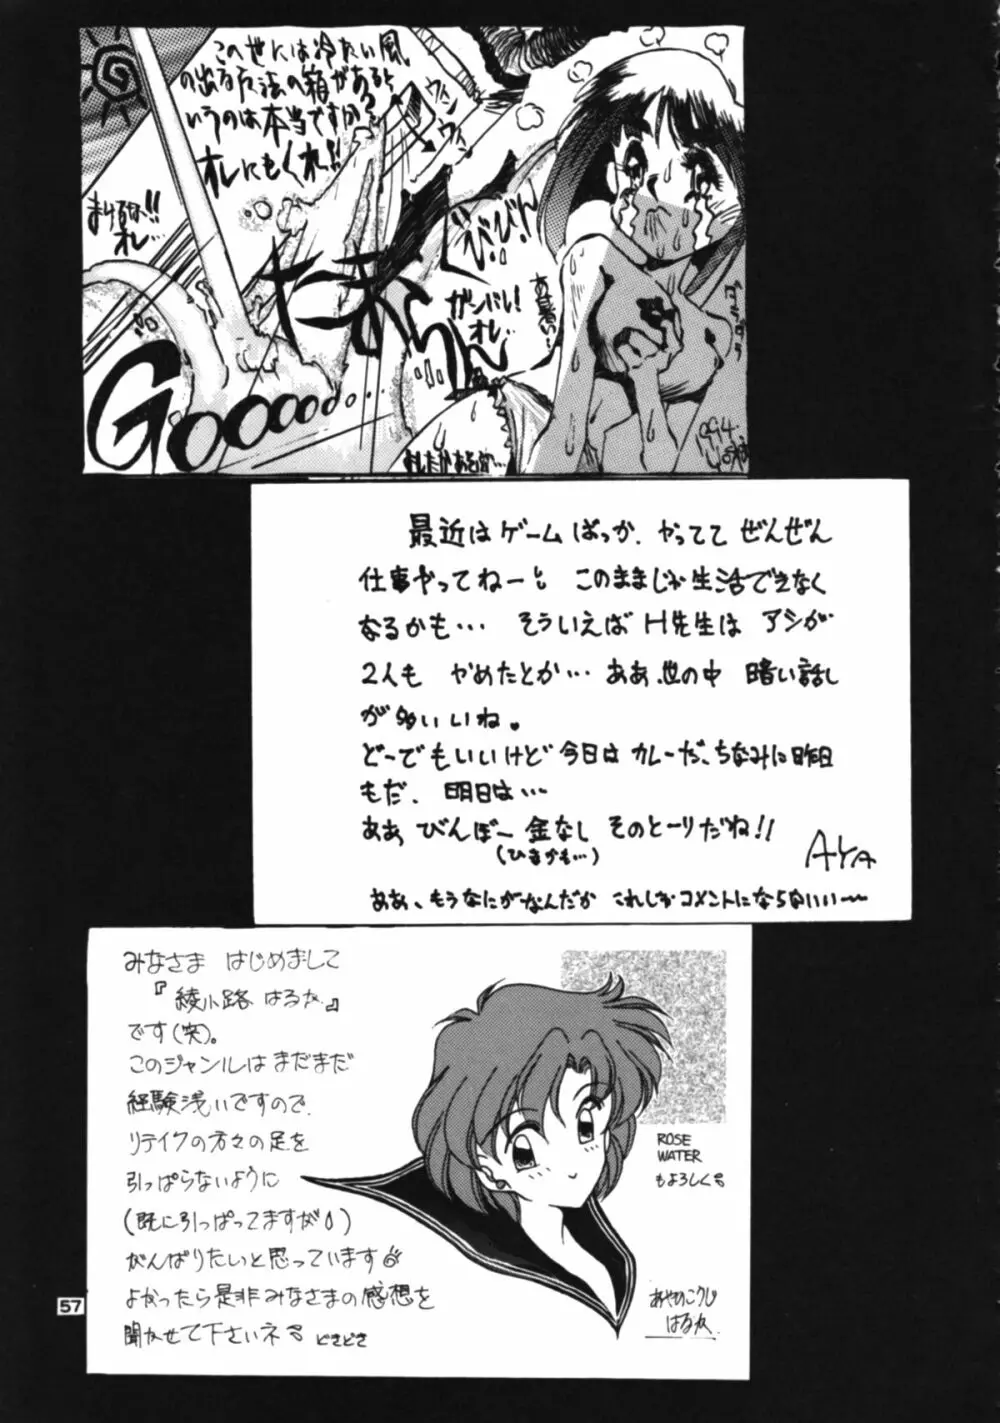 この世には冷たい風
の出る方法の箱があると
いうのは本当ですか?
オレにもくれ!!
ウィン
ウィ
まけるな!!
オレ…
びびびん!
ガンバレ!
オレ…
あ暑い…
GOOOOOO…
1994
最近はゲームばっか、やってて ぜんぜん
仕事やってねーし このままじゃ生活できなく
なるかも… そういえばH先生は アシが
2人も やめたとか… ああ、世の中 暗い話し
が多いいね。
どーでもいいけど今日は カレーだ、ちなみに昨日
もだ、明日は…
ああ びんぼー 金なし そのとーりだね!!
(ひまかも…)
AYA
ああ、もうなにがなんだか これしかコメントにならないいー
みなさま はじめまして
『綾小路 はるか』
です(笑)。
このジャンルはまだまだ
経験浅いですので、
リテイクの方々の足を
引っぱらないように
(既に引っぱってますが)
がんばりたいと思っています
よかったら是非みなさまの感想を
聞かせて下さいネ どきどき
ROSE
WATER
もよろしく
あやのこうじ
はるか
57